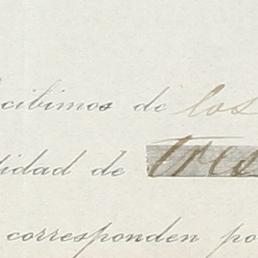 cibimos de los
tidad de tres
corresponden po